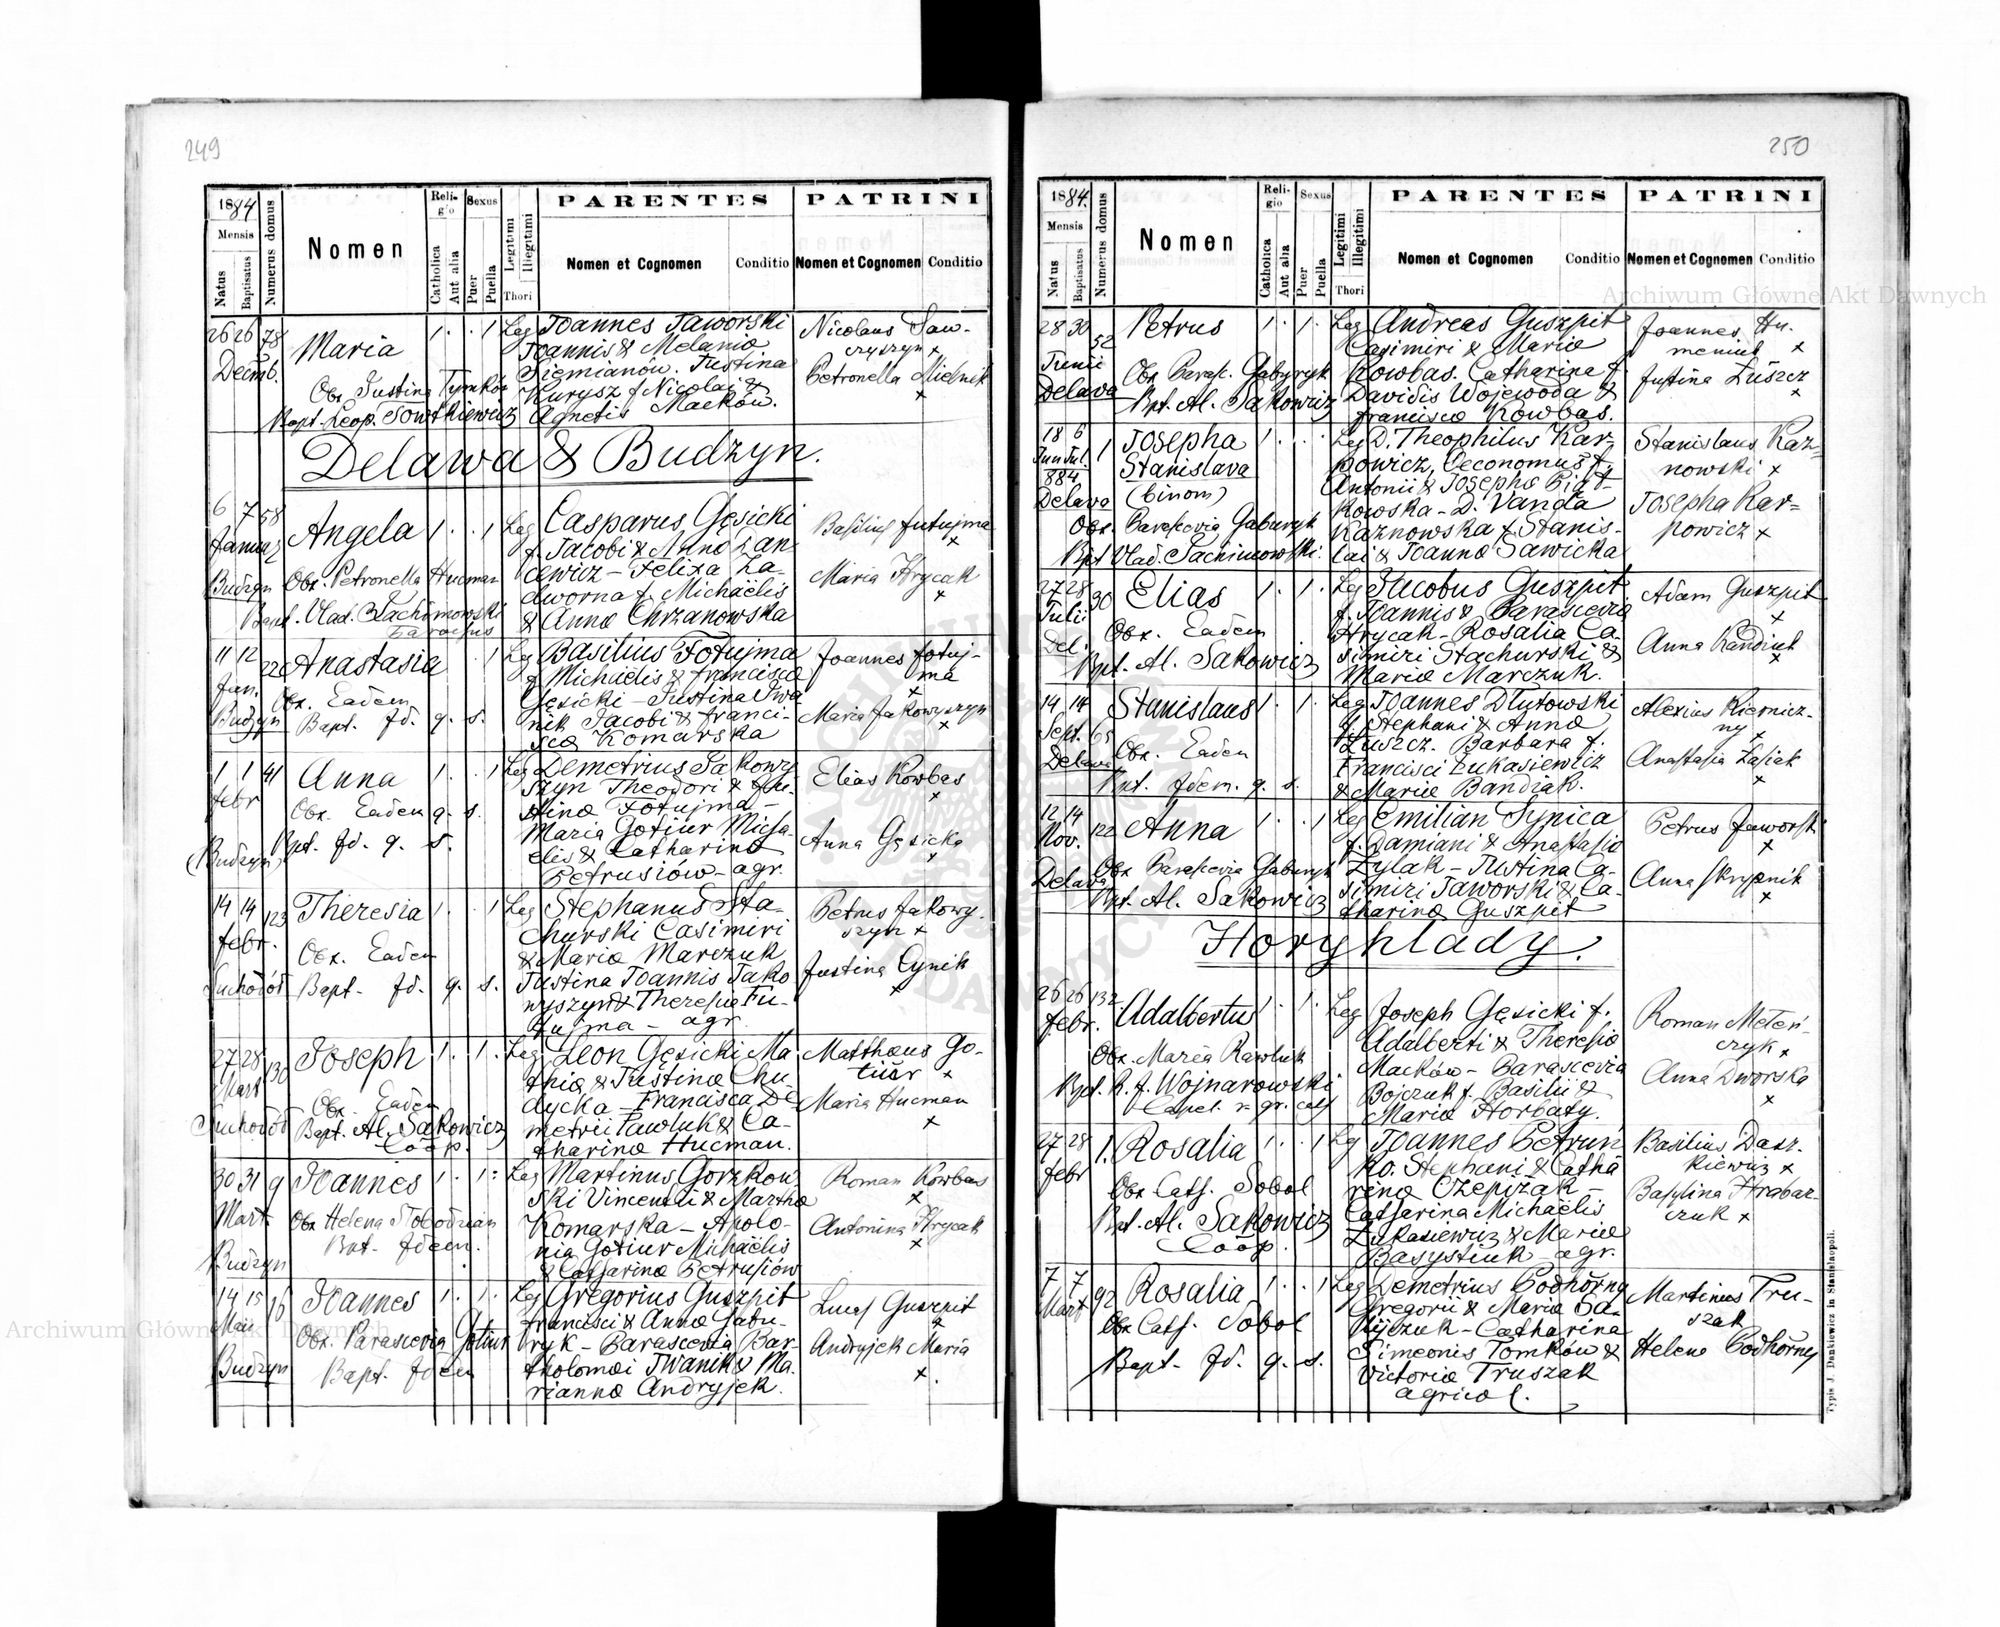 249
1884
Mensis
Natus
Baptisatus
Numerus domus
Nomen
Religio
Catholica
Aut alia
Sexus
Puer
Puella
Legitimi
Illegitimi
Thori
PARENTES
Nomen et Cognomen
Conditio
PATRINI
Nomen et Cognomen
Conditio
26 26 78
Decemb.
Maria
1 . . 1 Leg
Obx. Justina Tymków
Bapt. Leop. Sowtkiewicz
Joannes Jaworski
Joannis & Melania
Siemianów. Justina
Kurysz f Nicolai &
Agnetis Macków.
Nicolaus Saw-
czyszyn x
Petronella Mielnik
x
Delawa & Budzyn.
6 7 58
Januar
Budzyn
Angela
1 . . 1 Leg
Obx. Petronella Hucman
Bapt. Vlad. Tachimowski
Parochus
Casparus Gęsicki
f. Jacobi & Anna Łan-
cewicz - Felixa Za-
dworna f. Michaëlis
& Anna Chrzanowska
Basilius Futujma
x
Maria Hrycak
x
11 12 22
Jan.
Budzyn
Anastasia
1 Leg
Obx. Eadem
Bapt. Id. q. s.
Basilius Fotujma
f Michaelis & Francisca
Gęsicki - Justina Iwa-
nik Jacobi & Franci-
sca Komarska
Joannes Fotuj-
ma
x
Maria Jakowyszyn
x
1 1 41
Febr
Budzyn
Anna
1 . . 1 Leg
Obx. Eadem q. s.
Bpt. Id. q. s.
Demetrius Jakowy
szyn Theodori & Ju-
stina Fotujma -
Maria Gotiur Micha-
elis & Catharina
Petrusiów - agr.
Elias Kowbas
x
Anna Gęsicka
x
14 14 123
Febr.
Suchodół
Theresia
1 . . 1 Leg
Obx. Eadem
Bapt. Id. q. s.
Stephanus Sta-
churski Casimiri
& Maria Marczuk
Justina Joannis Jako
wyszyn & Theresia Fu-
tujma - agr.
Petrus Jakowy-
szyn x
Justina Cynik
x
27 28 130
Mart
Suchodół
Joseph
1 . 1 . Leg
Obx. Eadem
Bapt. Al. Sakowicz
Coop.
Leon Gęsicki Ma
thia & Justina Chu-
dycka - Francisca De
metrii Pawluk & Ca-
tharina Hucman.
Matthæus Go-
tiur x
Maria Hucman
x
30 31 9
Mart.
Budzyn
Joannes
1 . 1 . Leg
Obx Helena Słobodzian
Bpt. Idem.
Martinus Gorzkow
ski Vincentii & Martha
Komarska - Apolo-
nia Gotiur Michaëlis
& Catharina Petrusiow
Roman Kowbas
x
Antonina Hrycak
x
14 15 16
Maii
Budzyn
Joannes
1 . 1 . Leg
Obx. Parascevia Gotiur
Bapt. Idem
Gregorius Guszpit
Francisci & Anna Gabu-
ryk - Parascevia Bar-
tholomæi Iwanik & Ma-
rianna Andryjek.
Lucas Guszpit
x
Andryjek Maria
x.
250
1884.
Mensis
Natus
Baptisatus
Numerus domus
Nomen
Religio
Catholica
Aut alia
Sexus
Puer
Puella
Legitimi
Illegitimi
Thori
PARENTES
Nomen et Cognomen
Conditio
PATRINI
Nomen et Cognomen
Conditio
28 30 52
Junii
Delava
Petrus
1 . 1 . Leg
Obx Parasc. Gaburyk
Bpt. Al. Sakowicz
Andreas Guszpit
Casimiri & Maria
Kowbas. Catharina f.
Davidis Wojewoda &
Francisca Kowbas.
Joannes Hu-
meniuk x
Justina Łuszcz
x
18 6 1
Jun Jul.
884
Delava
Josepha
Stanislava
(binom)
Obx. Parascevia Gaburyk
Bpt Vlad. Tachimowski.
Leg D. Theophilus Kar-
powicz, Oeconomus f.
Antonii & Josepha Piąt-
kowska - D. Vanda
Kaznowska f. Stanis-
lai & Joanna Sawicka
Stanislaus Kaz-
nowski x
Josepha Kar-
powicz x
27 28 30
Julii
Del.
Elias
1 . 1 . Leg
Obx. Eadem
Bpt. Al. Sakowicz
Jacobus Guszpit
f. Joannis & Parascevia
Hrycak - Rosalia Ca-
simiri Stachurski &
Maria Marczuk.
Adam Guszpit
x
Anna Kandiuk
x
14 14 65
Sept.
Delava
Stanislaus
1 . 1 . Leg
Obx. Eadem
Bpt. Idem. q. s.
Joannes Dłutowski
f. Stephani & Anna
Łuszcz. Barbara f.
Francisci Łukasiewicz
& Maria Bandiak.
Alexius Kiernicz-
ny x
Anastasia Łasiak
x
12 14 122
Nov.
Delava
Anna
1 . . 1 Leg
Obx Parascevia Gaburyk
Bpt. Al. Sakowicz
Emilian Synica
f. Damiani & Anastasia
Zylak - Justina Ca-
simiri Jaworski & Ca-
tharina Guszpit
Petrus Jaworski
x
Anna Skrypnik
x
Horyhlady.
26 26 132
Febr.
Adalbertus
1 . 1 . Leg
Obx. Maria Pawluk
Bpt. R. f. Wojnarowski
Capel. r. gr. cath
Joseph Gęsicki f.
Adalberti & Theresia
Macków - Parascevia
Bojczuk f. Basilii &
Maria Horbaty.
Roman Meteń-
czyk x
Anna Dworska
x
27 28 1.
Febr
Rosalia
1 . . 1 Leg
Obx Cath. Sobol
Bpt. Al. Sakowicz
Coop.
Joannes Petruń
ko. Stephani & Catha
rina Czepiżak -
Catharina Michaëlis
Łukasiewicz & Maria
Basystiuk - agr.
Basilius Dasz-
kiewicz x
Basylina Hrabar-
czuk x
7 7 92
Mart
Rosalia
1 . . 1 Leg
Obx Cath. Sobol
Bapt. Id. q. s.
Demetrius Podhorny
Gregorii & Maria Sa-
kijczuk - Catharina
Simeonis Tomków &
Victoria Truszak
agricol.
Martinus Tru-
szak
Helena Podhorny
Typis J. Dankiewicz in Stanislaopoli.
Archiwum Główne Akt Dawnych
Archiwum Główne Akt Dawnych